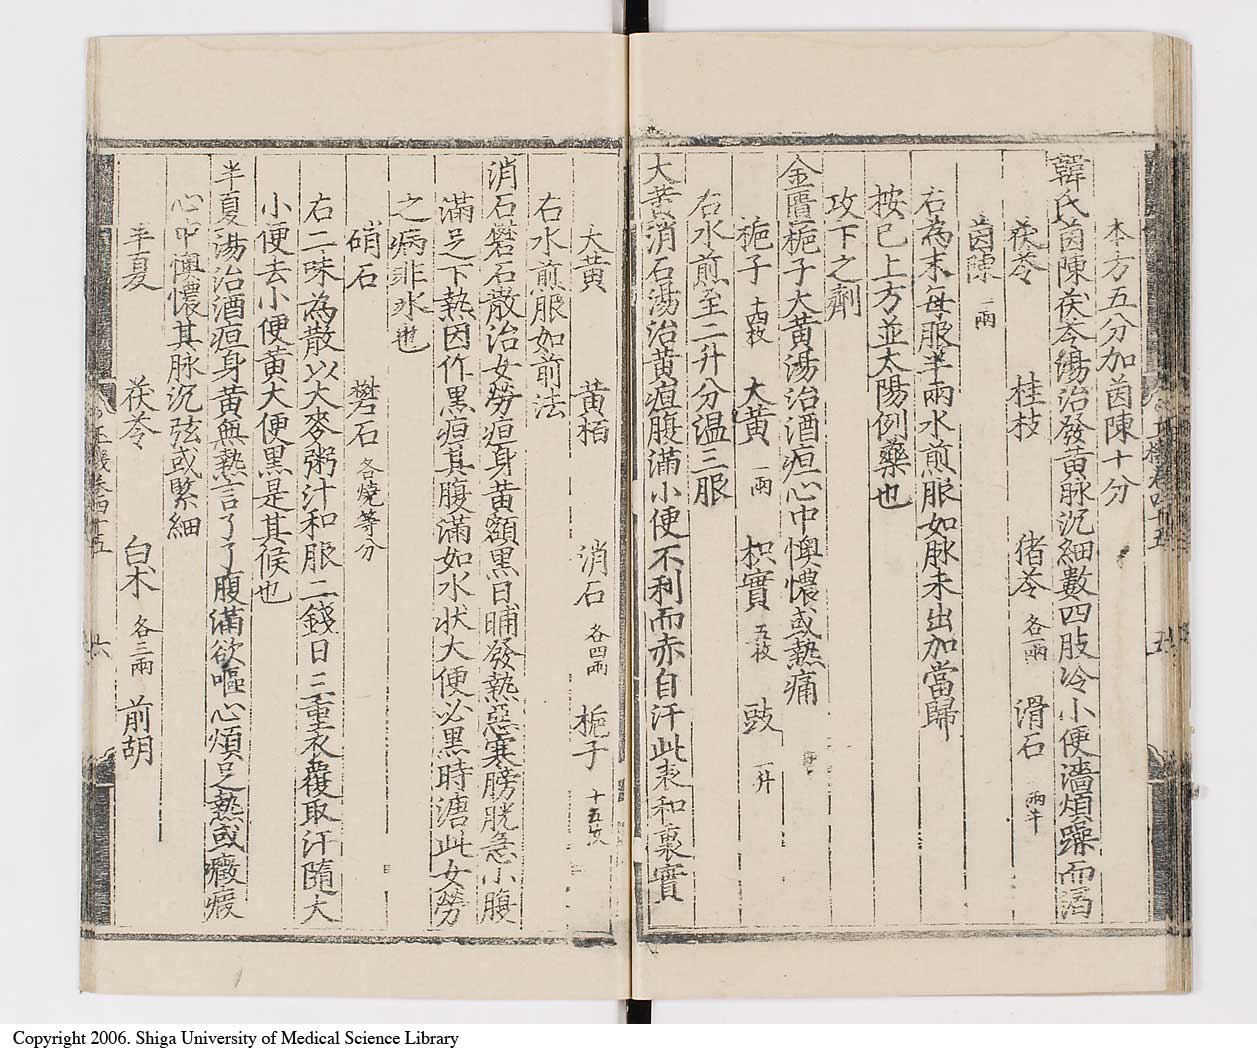 本方五分加茵陳十分
韓氏茵陳茯苓湯治發黄脉沉細數四肢冷小便濇煩躁而渴
茯苓 桂枝 猪苓 各一兩 滑石 兩半
茵陳 一兩
右為末每服半兩水煎服如脉未出加當歸
按已上方並太陽例藥也
攻下之劑
金匱梔子大黄湯治酒疸心中懊憹或熱痛
梔子 十四枚 大黄 一兩 枳實 五枚 豉 一升
右水煎至二升分温三服
大黄消石湯治黄疸腹滿小便不利而赤自汗此表和裏實
大黄 黄栢 消石 各四兩 梔子 十五枚
右水煎服如前法
消石礬石散治女勞疸身黄額黒日晡發熱惡寒膀胱急小腹
滿足下熱因作黒疸其腹滿如水状大便必黒時溏此女勞
之病非水也
硝石 礬石 各燒等分
右二味為散以大麥粥汁和服二錢日三重衣覆取汗隨大
小便去小便黄大便黒是其候也
半夏湯治酒疸身黄無熱言了了腹滿欲嘔心煩足熱或癥瘕
心中懊憹其脉沉弦或緊細
半夏 茯苓 白朮 各三兩 前胡
六
Copyright 2006. Shiga University of Medical Science Library